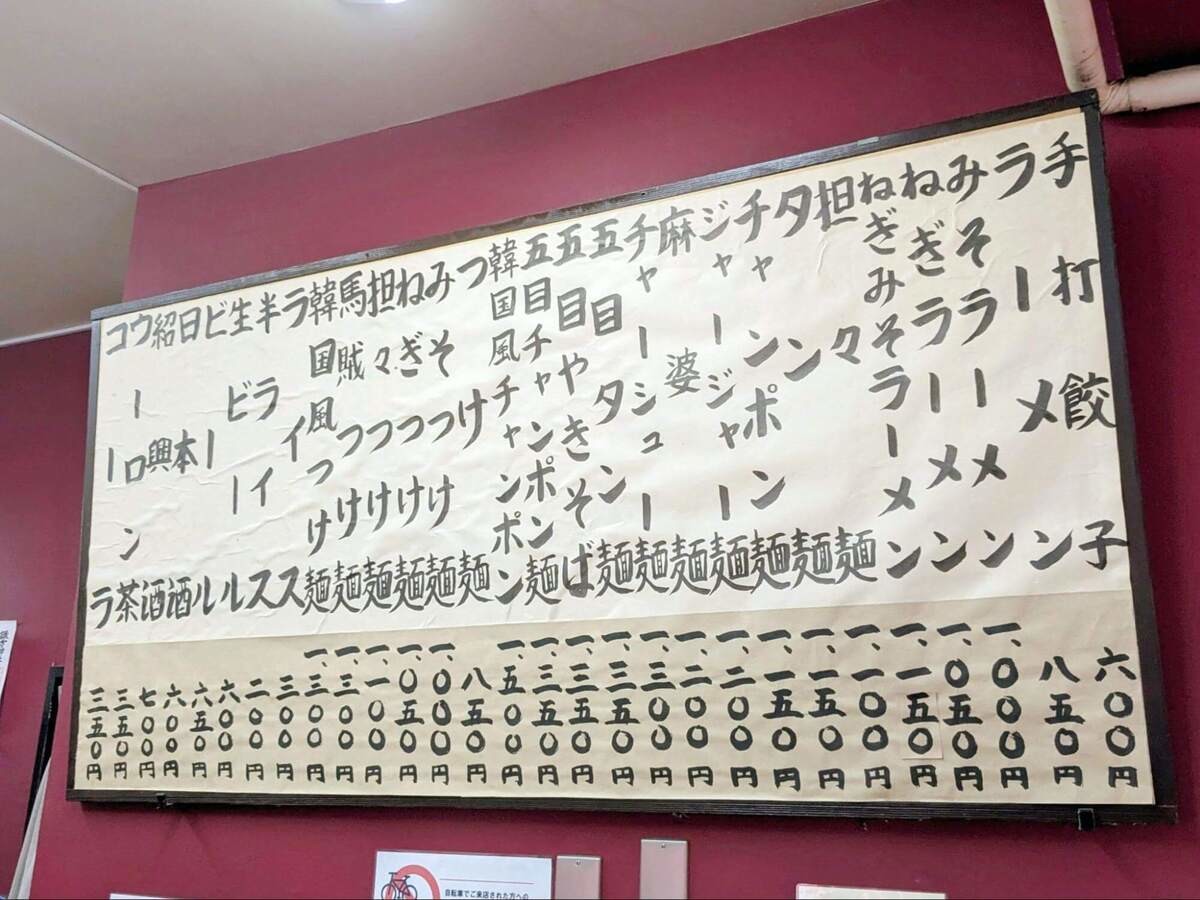 手打餃子 六〇〇円
ラーメン 八五〇円
みそラーメン 一、〇〇〇円
ねぎラーメン 一、〇五〇円
ねぎみそラーメン 一、一五〇円
担々麺 一、一〇〇円
タンメン麺 一、一五〇円
チャンポン麺 一、一五〇円
ジャージャー麺 一、二〇〇円
麻婆麺 一、二〇〇円
チャーシュー麺 一、三〇〇円
五目タン麺 一、三五〇円
五目やきそば 一、三五〇円
五目チャンポン麺 一、三五〇円
韓国風チャンポン 一、五〇〇円
つけ麺 八五〇円
みそつけ麺 一、〇〇〇円
ねぎつけ麺 一、〇五〇円
担々つけ麺 一、一〇〇円
馬賊つけ麺 一、三〇〇円
韓国風つけ麺 一、三〇〇円
ライス 三〇〇円
半ライス 二〇〇円
生ビール 六〇〇円
ビール 六五〇円
日本酒 六〇〇円
紹興酒 七〇〇円
ウーロン茶 三五〇円
コーラ 三五〇円
自転車でご来店された方への